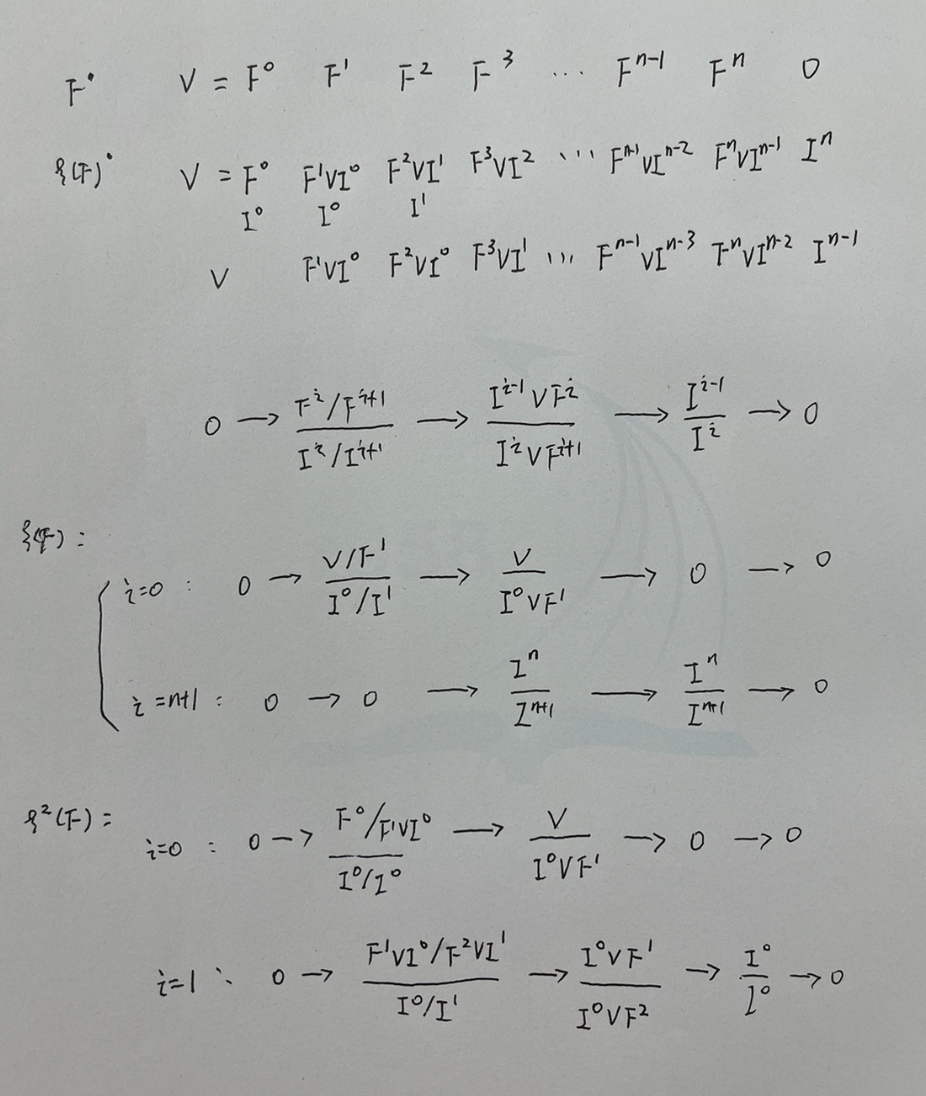 F^• V = F^0 F^1 F^2 F^3 ... F^{n-1} F^n 0
ξ(F)^• V = F^0 F^1∨I^0 F^2∨I^1 F^3∨I^2 ... F^{n-1}∨I^{n-2} F^n∨I^{n-1} I^n
I^0 I^0 I^1
V F^1∨I^0 F^2∨I^0 F^3∨I^1 ... F^{n-1}∨I^{n-3} F^n∨I^{n-2} I^{n-1}
0 → \frac{F^i/F^{i+1}}{I^i/I^{i+1}} → \frac{I^{i-1}∨F^i}{I^i∨F^{i+1}} → \frac{I^{i-1}}{I^i} → 0
ξ(F) :
i=0 : 0 → \frac{V/F^1}{I^0/I^1} → \frac{V}{I^0∨F^1} → 0 → 0
i=n+1 : 0 → 0 → \frac{I^n}{I^{n+1}} → \frac{I^n}{I^{n+1}} → 0
ξ^2(F) :
i=0 : 0 → \frac{F^0/F^1∨I^0}{I^0/I^0} → \frac{V}{I^0∨F^1} → 0 → 0
i=1 : 0 → \frac{F^1∨I^0/F^2∨I^1}{I^0/I^1} → \frac{I^0∨F^1}{I^0∨F^2} → \frac{I^0}{I^0} → 0